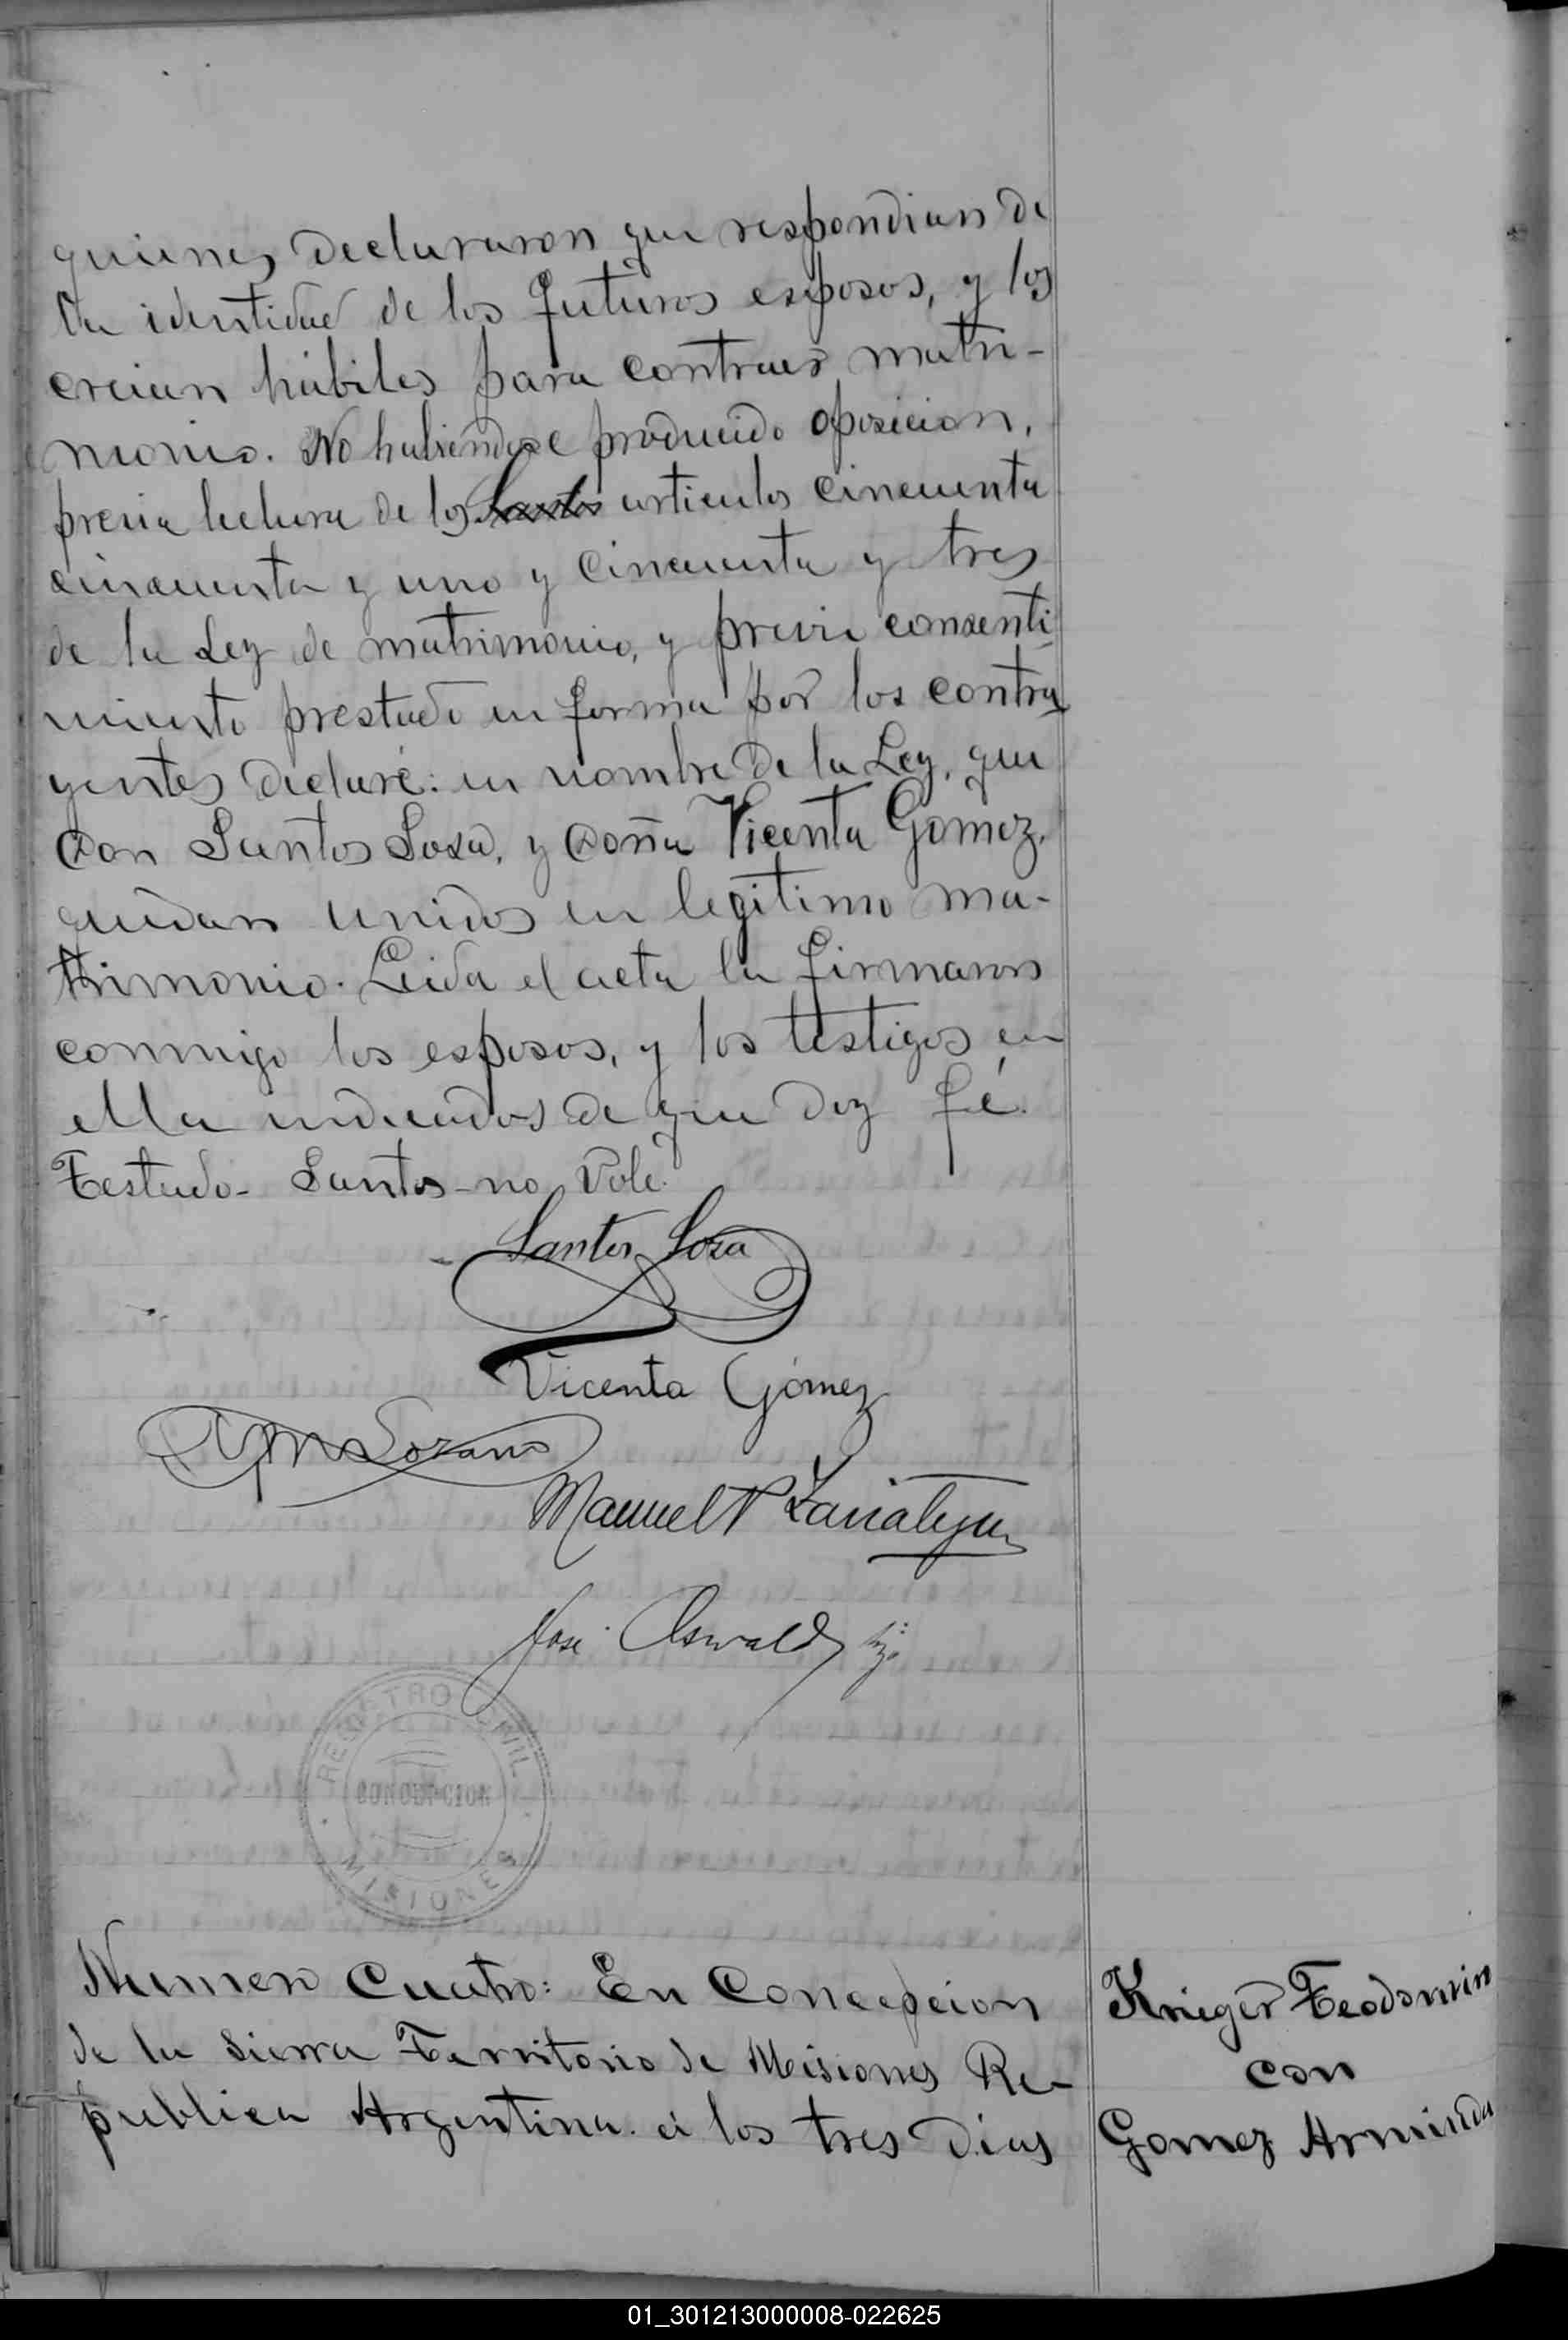 quienes declararon que respondian de
la identidad de los futuros esposos, y los
creian hábiles para contraer matri-
monio. No habiendose producido oposicion,
previa lectura de los Santos articulos cincuenta
cincuenta y uno y cincuenta y tres
de la Ley de matrimonio, y previo consenti-
miento prestado en forma por los contra-
yentes declaré: en nombre de la Ley, que
Don Santos Sosa, y Doña Vicenta Gomez,
quedan unidos en legitimo ma-
trimonio. Leida el acta la firmaron
conmigo los esposos, y los testigos en
ella indicados de que doy fé.
Testado- Santos- no Vale.
Santos Sosa
Vicenta Gómez
Lozano
Manuel
José Oswald
REGISTRO CIVIL
CONCEPCION
MISIONES
Numero Cuatro: En Concepcion
de la Sierra Territorio de Misiones Re-
publica Argentina á los tres dias
Krieger Teodomiro
con
Gomez Arminda
01_301213000008-022625